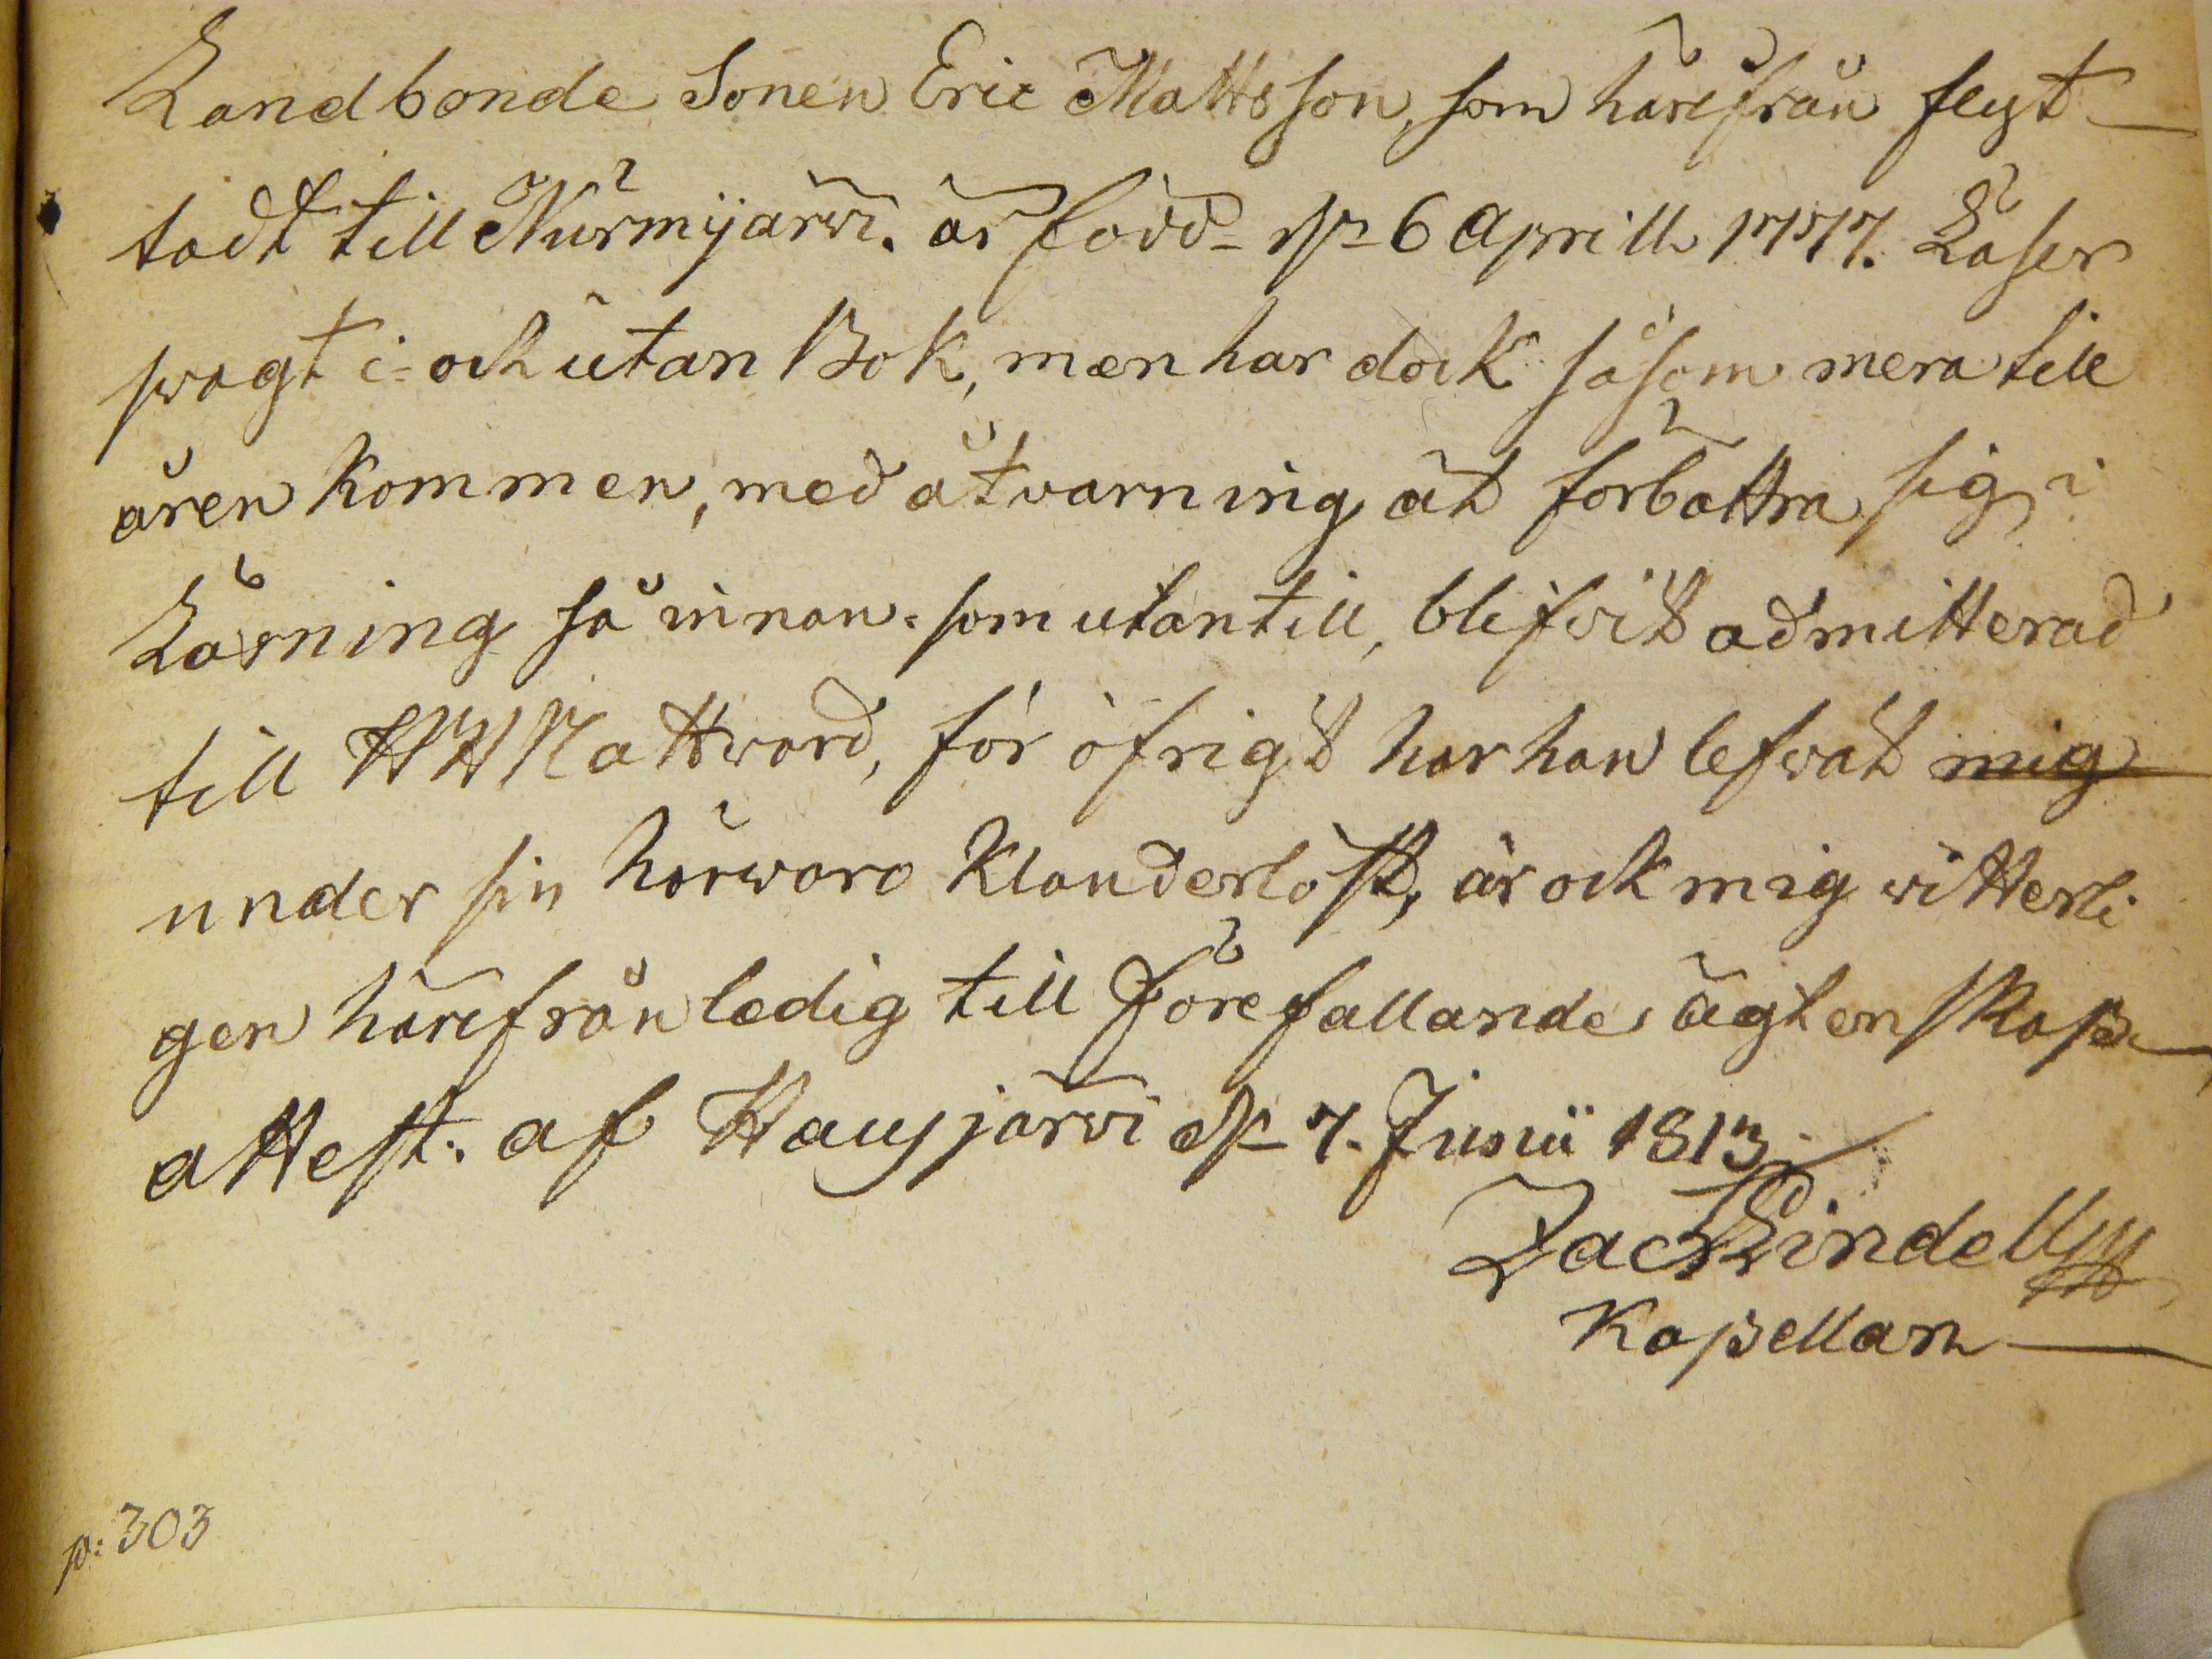 Landbonde Sonen Eric Mattsson, som härifrån flyt-
tadt till Nurmijärwi. är född dn 6 Aprill 1777. Läser
swagt i= och utan Bok, men har dock såsom mera till
åren kommen, med åtvarning at förbättra sig i
Läsning så innan= som utantill, blifvit admitterad
till HH Nattward, för öfrigt har han lefvat mig
under sin härwaro klanderlöst, är ock mig witterli
gen härifrån ledig till förefallande ägtenskap
attest. af Hausjärvi dn 7. Junii 1813.
Zach Lindell
Kapellan
p: 303